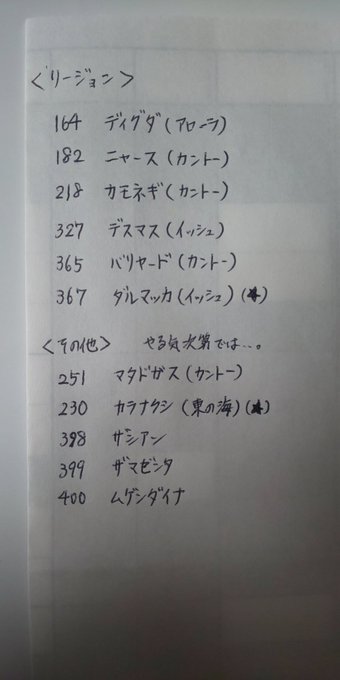 <リージョン>
164 ディグダ(アローラ)
182 ニャース(カントー)
218 カモネギ(カントー)
327 デスマス(イッシュ)
365 バリヤード(カントー)
367 ダルマッカ(イッシュ)(★)
<その他> やる気次第では…。
251 マタドガス(カントー)
230 カラナクシ(東の海)(★)
398 ザシアン
399 ザマゼンタ
400 ムゲンダイナ